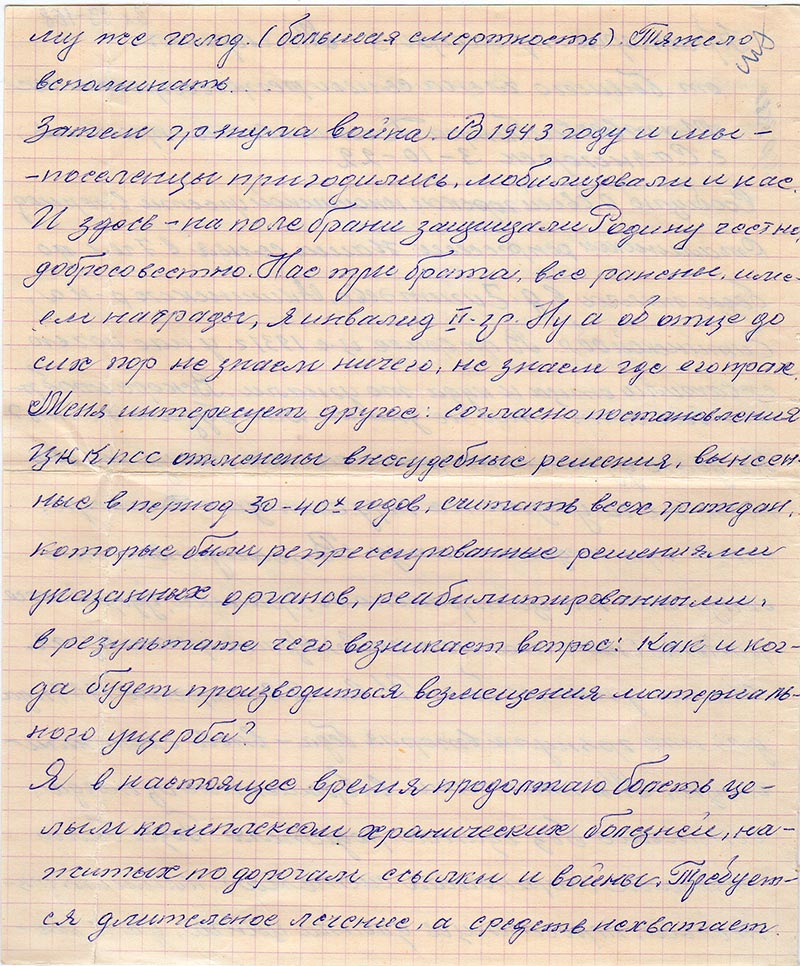 му же голод. (большая смертность). Тяжело
вспоминать...
Затем грянула война. В 1943 году и мы –
-поселенцы пригодились, мобилизовали и нас.
И здесь – на поле брани защищали Родину честно,
добросовестно. Нас три брата, все ранены, име-
ем награды, я инвалид II-гр. Ну а об отце до
сих пор не знаем ничего, не знаем где его прах.
Меня интересует другое: согласно постановления
ЦК КПСС отменены внесудебные решения, вынесен-
ные в период 30-40х годов, считать всех граждан,
которые были репрессированные решениями
указанных органов, реабилитированными,
в результате чего возникает вопрос: Как и ког-
да будет производиться возмещения материаль-
ного ущерба?
Я в настоящее время продолжаю болеть це-
лым комплексом хранических болезней, на-
житых по дорогам ссылки и войны. Требует-
ся длительное лечение, а средств нехватает.